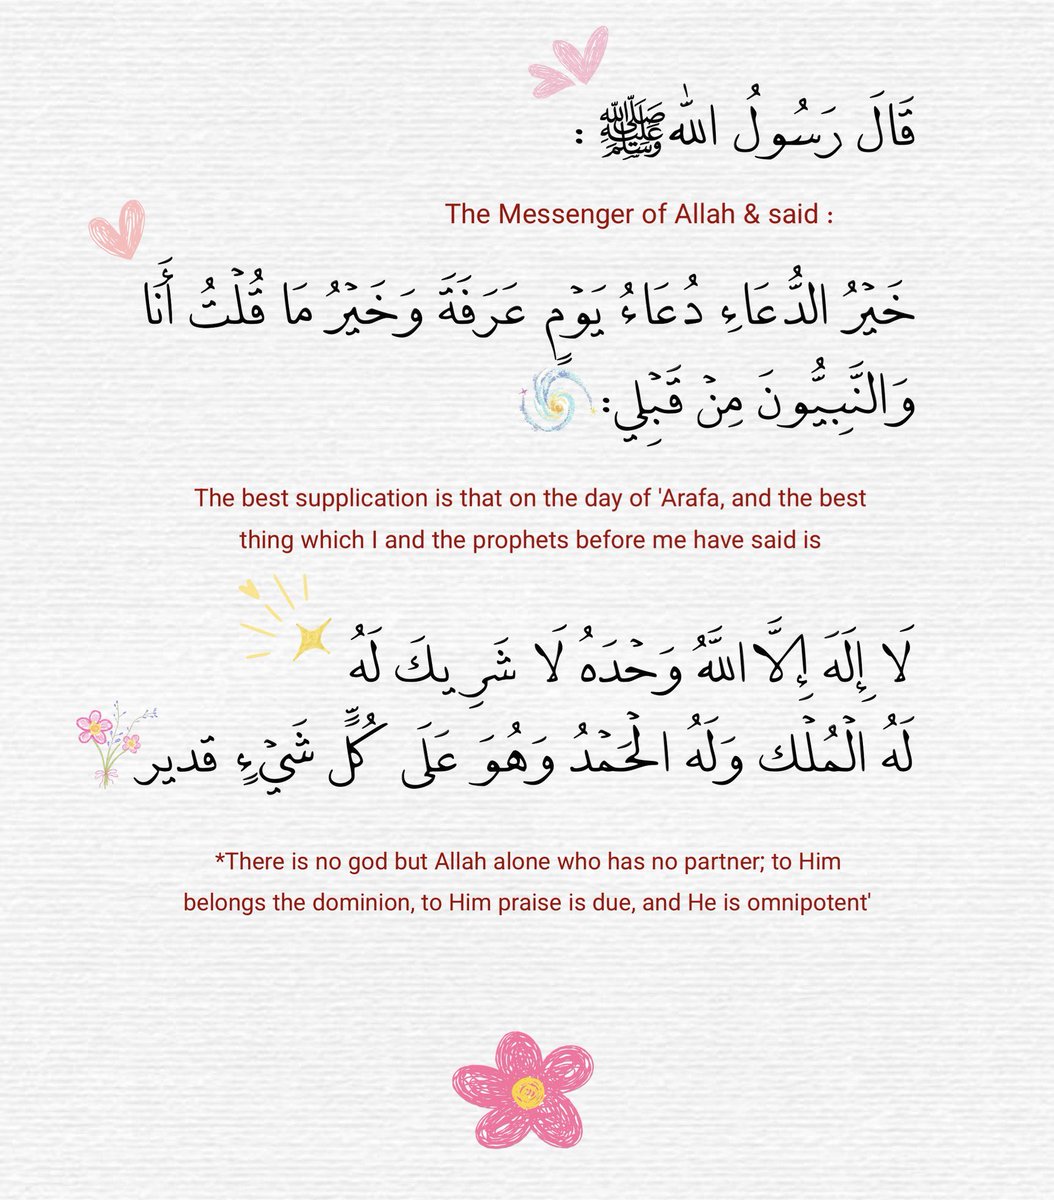 قَالَ رَسُولُ اللّٰه ﷺ :
The Messenger of Allah & said :
خَيْرُ الدُّعَاءِ دُعَاءُ يَوْمٍ عَرَفَةَ وَخَيْرُ مَا قُلْتُ أَنَا
وَالنَّبِيُّونَ مِنْ قَبْلِي:
The best supplication is that on the day of 'Arafa, and the best
thing which I and the prophets before me have said is
لَا إِلَهَ إِلَّا اللَّهُ وَحْدَهُ لَا شَرِيكَ لَهُ
لَهُ الْمُلْك وَلَهُ الْحَمْدُ وَهُوَ عَلَى كُلِّ شَيْءٍ قدير
*There is no god but Allah alone who has no partner; to Him
belongs the dominion, to Him praise is due, and He is omnipotent'